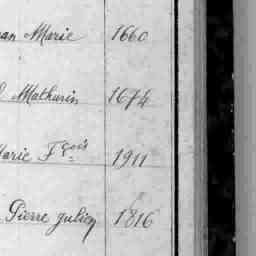 an Marie 1660
Mathurin 1674
Marie Fçois 1911
Pierre Julien 1816